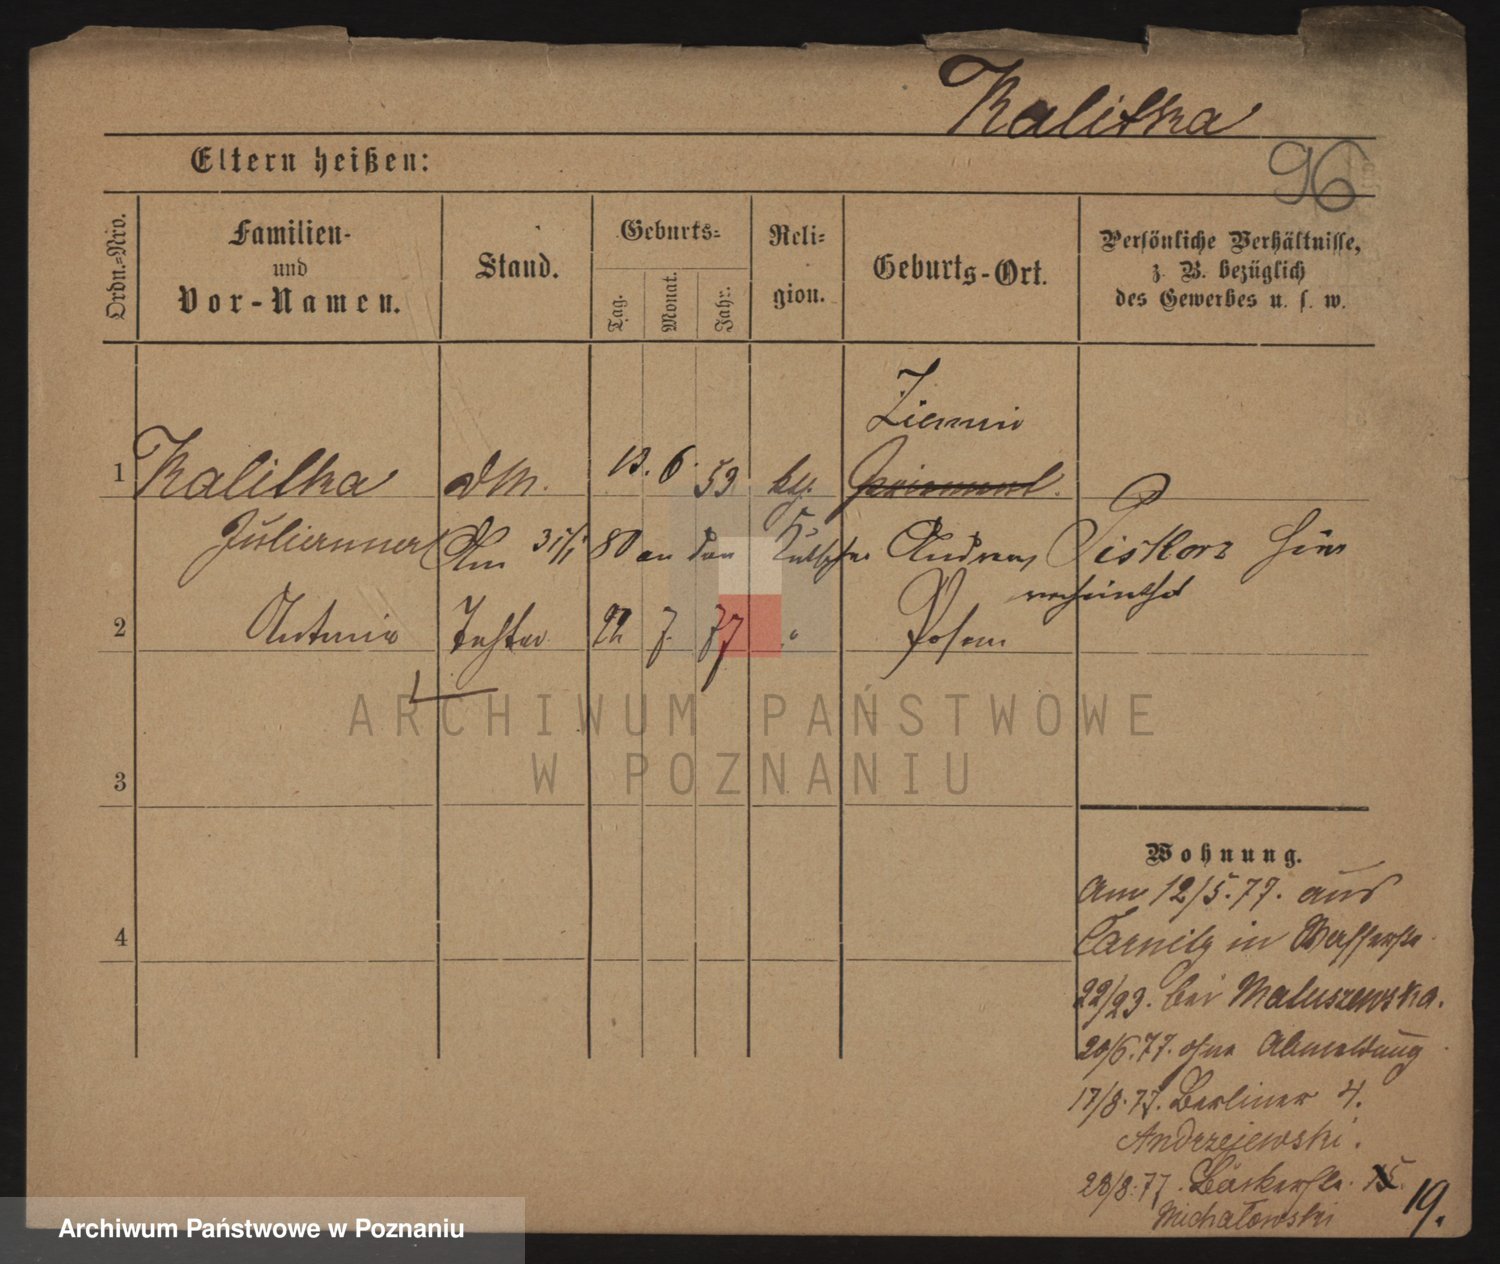 Kalitka
96
Eltern heißen:
Ordn.-Nro.
Familien-
und
Vor-Namen.
Stand.
Geburts-
Tag.
Monat.
Jahr.
Reli-
gion.
Geburts-Ort.
Persönliche Verhältnisse,
z. B. bezüglich
des Gewerbes u. s. w.
1 Kalitka 13. 6. 53
Am 31/1 80 an den Kutscher Andreas Piskorz hier
verheirathet
2 Antonie Tochter 22 7. 77 " Posen
3
4
Wohnung.
Am 12/5. 77. aus
in Wasserstr.
22/23. bei Matuszewska.
20/6. 77. ohne Abmeldung
17/8. 77. Berliner 4.
Andrzejewski.
28/8. 77. Bäckerstr.
Michałowski
19.
ARCHIWUM PAŃSTWOWE
W POZNANIU
Archiwum Państwowe w Poznaniu